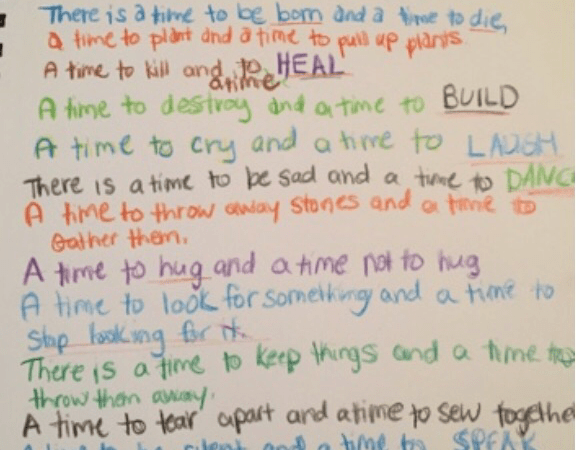 There is a time to be born and a time to die,
a time to plant and a time to pull up plants.
A time to kill and a time to HEAL
A time to destroy and a time to BUILD
A time to cry and a time to LAUGH
There is a time to be sad and a time to DANC
A time to throw away stones and a time to
Gather them.
A time to hug and a time not to hug
A time to look for something and a time to
Stop looking for it.
There is a time to keep things and a time to
throw them away.
A time to tear apart and a time to sew togethe
A time to be silent and a time to SPEAK